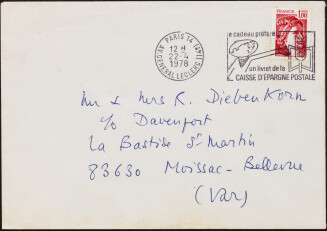 PARIS 14 (14E)
AV. GENERAL LECLERC
12 H
22-4
1978
le cadeau préféré
un livret de la
CAISSE D'EPARGNE POSTALE
FRANCE
1,00
Mr & Mrs R. Diebenkorn
c/o Davenport
La Bastide St Martin
83630 Moissac-Bellevue
(Var)